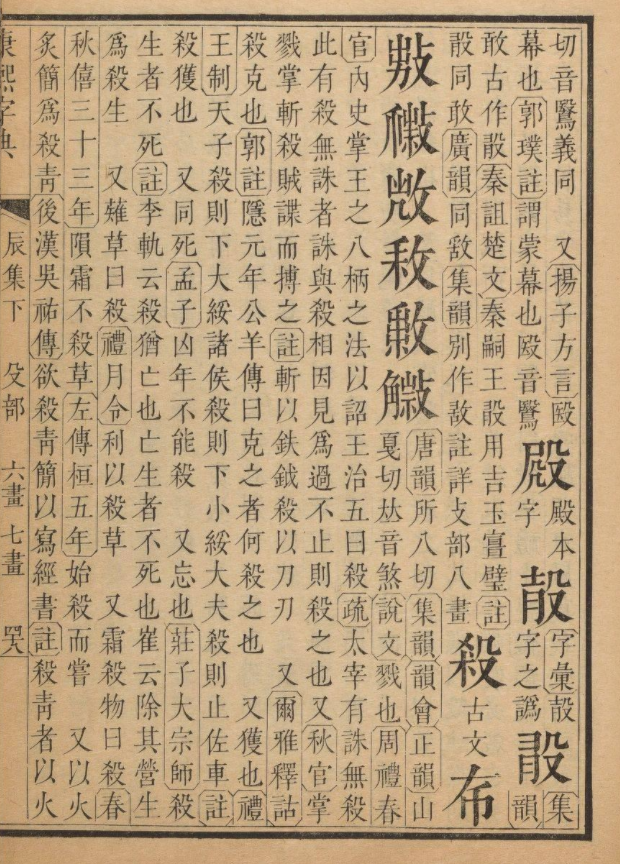 切音鷖義同 又揚子方言殹
幕也郭璞註謂蒙幕也殹音鷖
殿本
字
字彙
字之譌
集
韻
敢古作㪉秦詛楚文秦嗣王㪉用吉玉亶璧註
㪉同敢廣韻同集韻別作註詳攴部八畫
殺
古文
布
唐韻所八切集韻韻會正韻山
戛切𠀤音煞說文戮也周禮春
官內史掌王之八柄之法以詔王治五曰殺疏太宰有誅無殺
此有殺無誅者誅與殺相因見爲過不止則殺之也又秋官掌
戮掌斬殺賊諜而搏之註斬以鈇鉞殺以刀刃 又爾雅釋詁
殺克也郭註隱元年公羊傳曰克之者何殺之也 又獲也禮
王制天子殺則下大綏諸侯殺則下小綏大夫殺則止佐車註
殺獲也 又同死孟子凶年不能殺 又忘也莊子大宗師殺
生者不死註李軌云殺猶亡也亡生者不死也崔云除其營生
爲殺生 又薙草曰殺禮月令利以殺草 又霜殺物曰殺春
秋僖三十三年隕霜不殺草左傳桓五年始殺而嘗 又以火
炙簡爲殺靑後漢吳祐傳欲殺靑簡以寫經書註殺靑者以火
康熙字典 辰集下 殳部 六畫 七畫